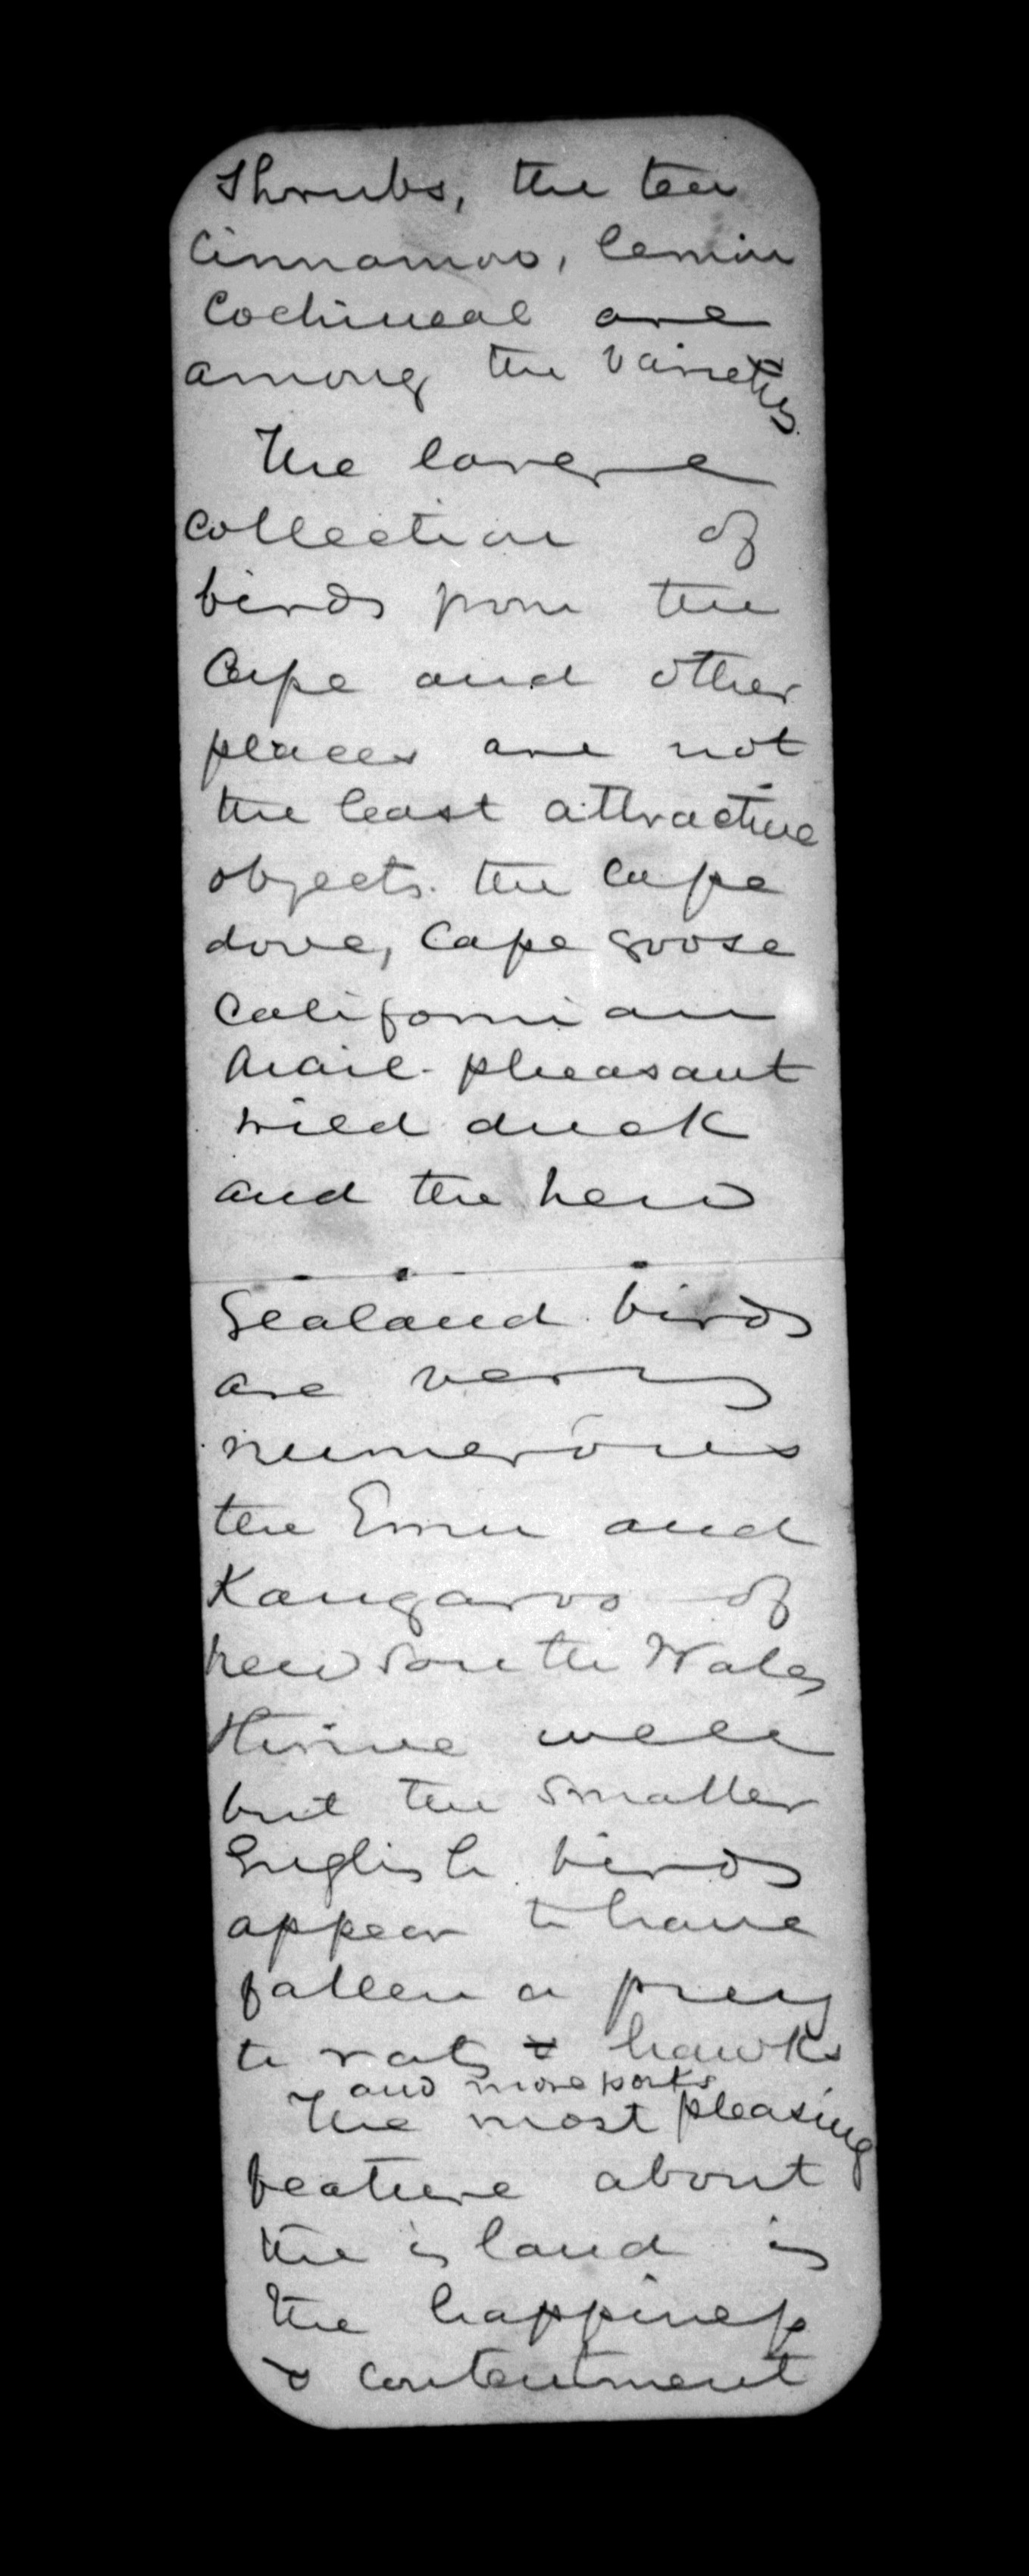 Shrubs, the tea
Cinnamon, lemon
Cochineal are
among the varieties
The large
collection of
birds from the
Cape and other
places are not
the least attractive
objects. the Cape
dove, Cape goose
Californian
Quail. pheasant
wild duck
and the New
Zealand birds
are very
numerous
the Emu and
Kangaroo of
New South Wales
thrive well
but the smaller
English birds
appear to have
fallen a prey
to rats & hawks
and moreporks
The most pleasing
feature about
the island is
the happiness
& contentment